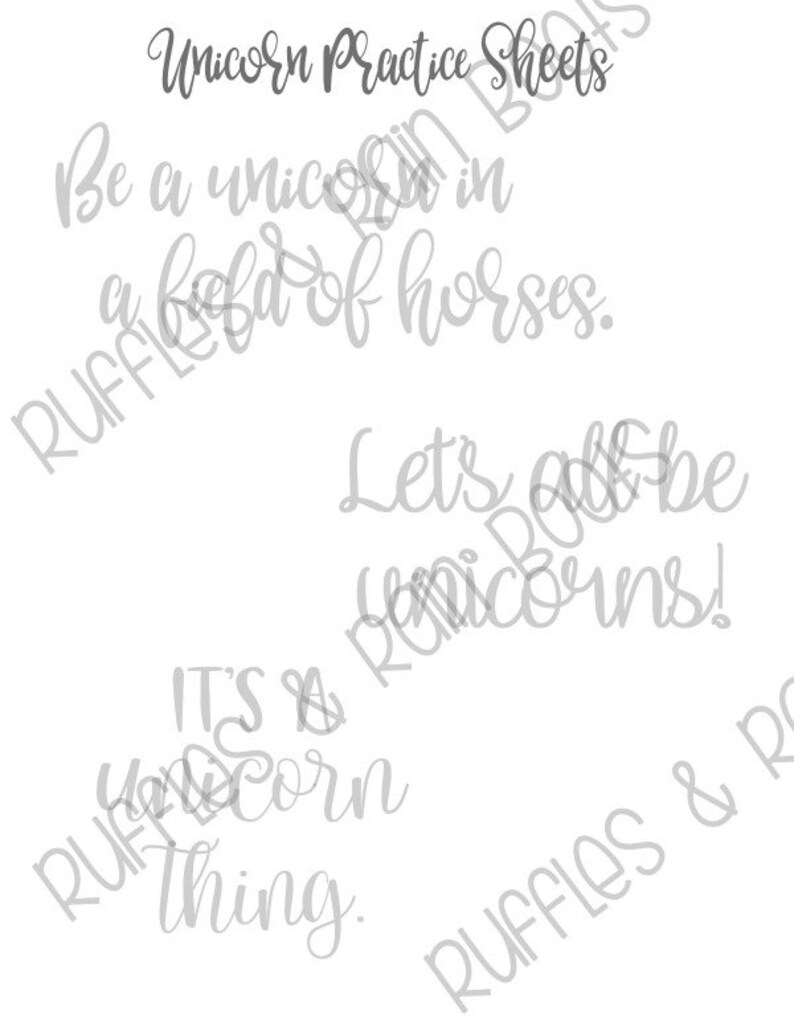 Unicorn Practice Sheets
Be a unicorn in
a field of horses.
Let's all be
unicorns!
IT'S A
unicorn
thing.
Ruffles & Rain Boots
Ruffles & Rain Boots
Ruffles & Ra